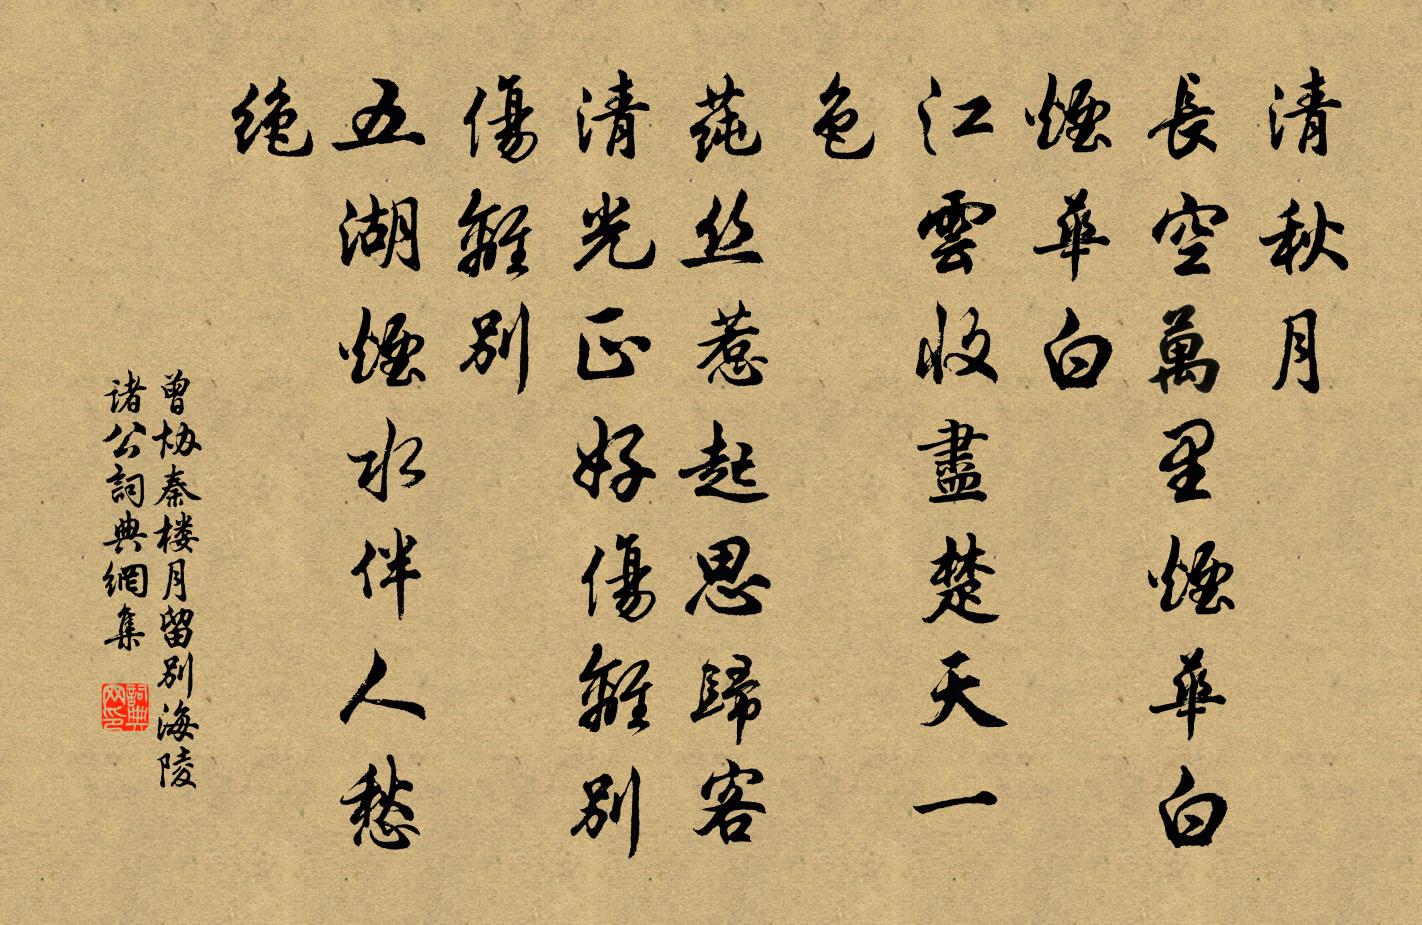 清秋月
長空萬里煙華白
煙華白
江雲收盡楚天一
色
蒓丝惹起思歸客
清光正好傷離別
傷離別
五湖煙水伴人愁
绝
曾协秦楼月留别海陵
诸公詞典網集
詞典
网印